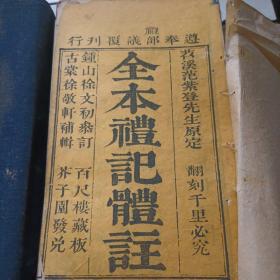 遵奉部議覆刊行
殿
苕溪范紫登先生原定
翻刻千里必究
全本禮記體註
鍾山徐文初叅訂
古棠徐敬軒補輯
百尺樓藏板
芥子園發兌